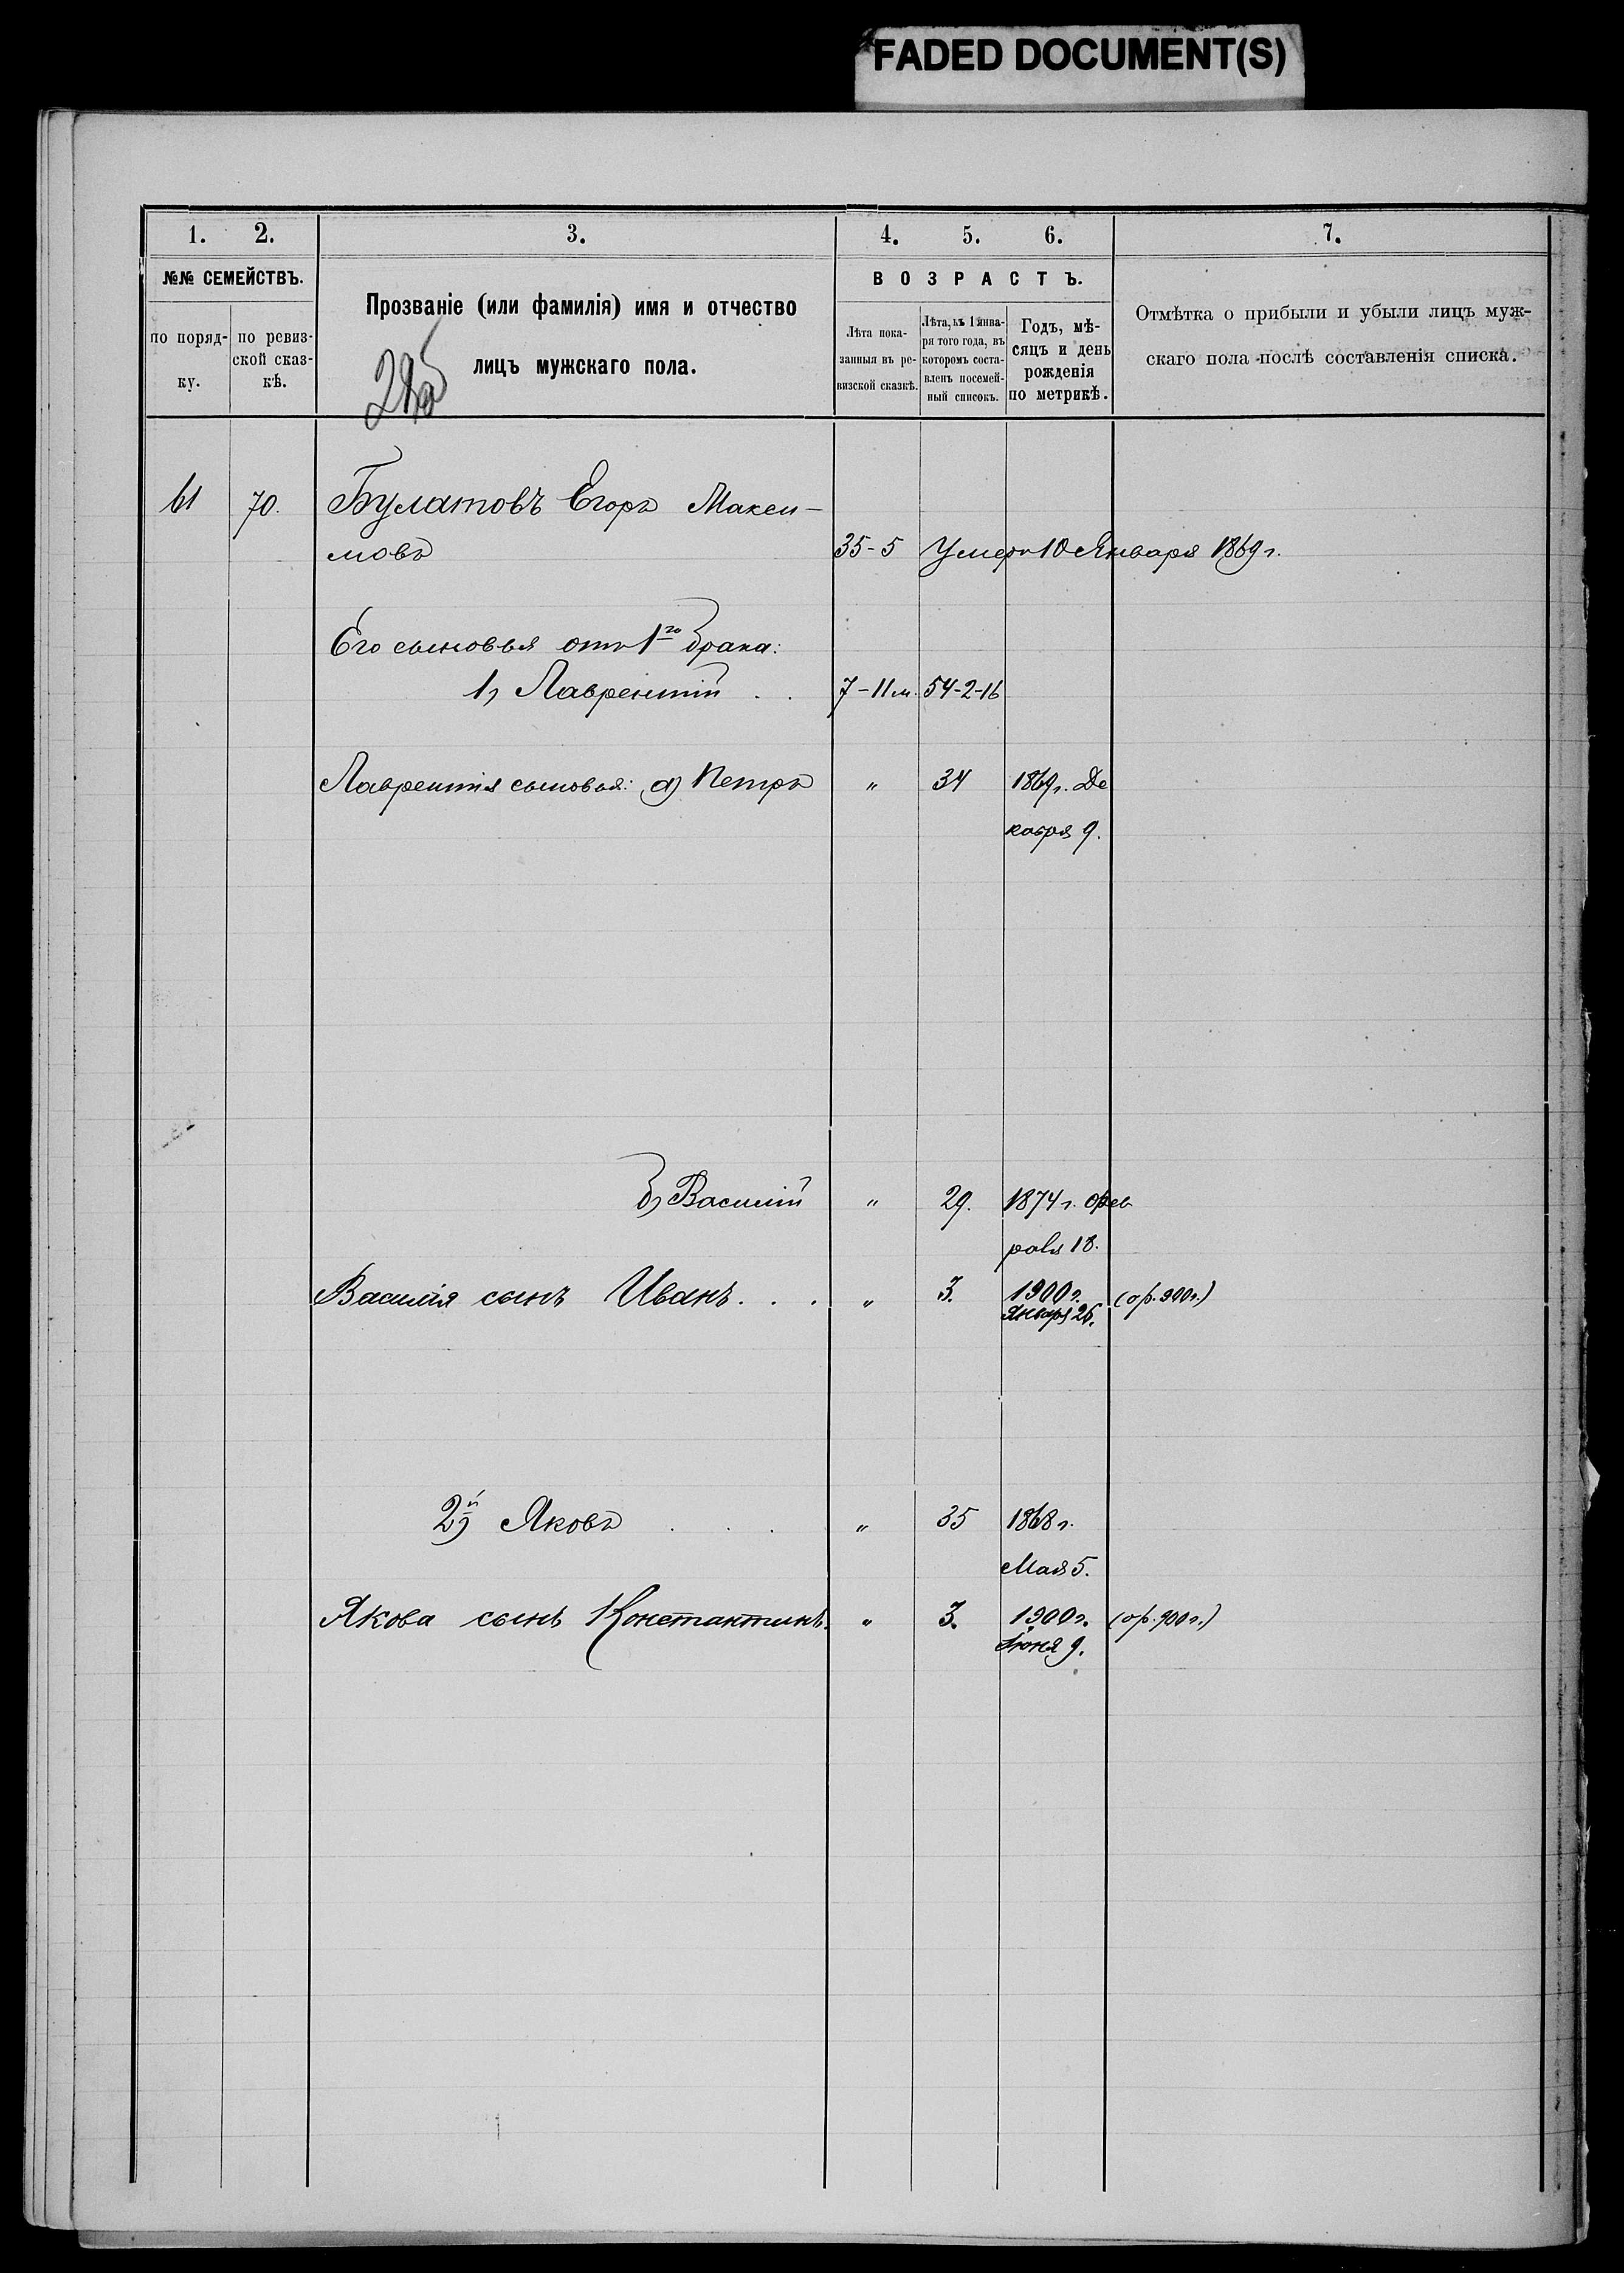 FADED DOCUMENT(S)
1. 2. 3. 4. 5. 6. 7.
№№ СЕМЕЙСТВЪ.
по порядку.
по ревизской сказкѣ.
Прозваніе (или фамилія) имя и отчество
лицъ мужскаго пола.
ВОЗРАСТЪ.
Лѣта показанныя въ ревизской сказкѣ.
Лѣта, къ 1 января того года, въ которомъ составленъ посемейный списокъ.
Годъ, мѣсяцъ и день рожденія по метрикѣ.
Отмѣтка о прибыли и убыли лицъ мужскаго пола послѣ составленія списка.
61 70. Булатовъ Егоръ Макси-
мовъ 35-5 Умеръ 10 Января 1869 г.
Его сыновья отъ 1го брака:
1) Лаврентій . . 7-11 м. 54-2-16
Лаврентія сыновья: а) Петръ " 34 1869 г. Де
кабря 9.
б) Василій " 29. 1874 г. Фев
раля 18.
Василія сынъ Иванъ. . . " 3. 1900 г. (ор. 900 г.)
Января 25.
2й) Яковъ . . . " 35 1868 г.
Мая 5.
Якова сынъ Константинъ. " 3. 1900 г. (ор. 900 г.)
Іюня 9.